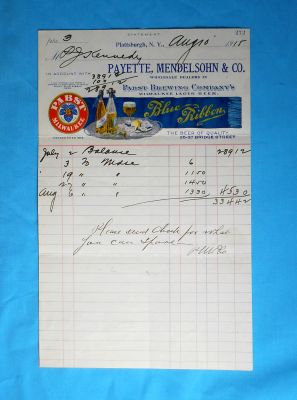 STATEMENT
Plattsburgh, N. Y., Aug 10 1915
M P J Kennedy
PAYETTE, MENDELSOHN & CO.
IN ACCOUNT WITH
WHOLESALE DEALERS IN
PABST BREWING COMPANY'S
MILWAUKEE LAGER BEER.
PABST
MILWAUKEE
Blue Ribbon
THE BEER OF QUALITY
25-27 BRIDGE STREET
July 2 Balance 28912
3 To Mdse 6
19 " " 1150
27 " " 1450
Aug 6 " " 1330 4530
33442
Please send Check for what
you can spare